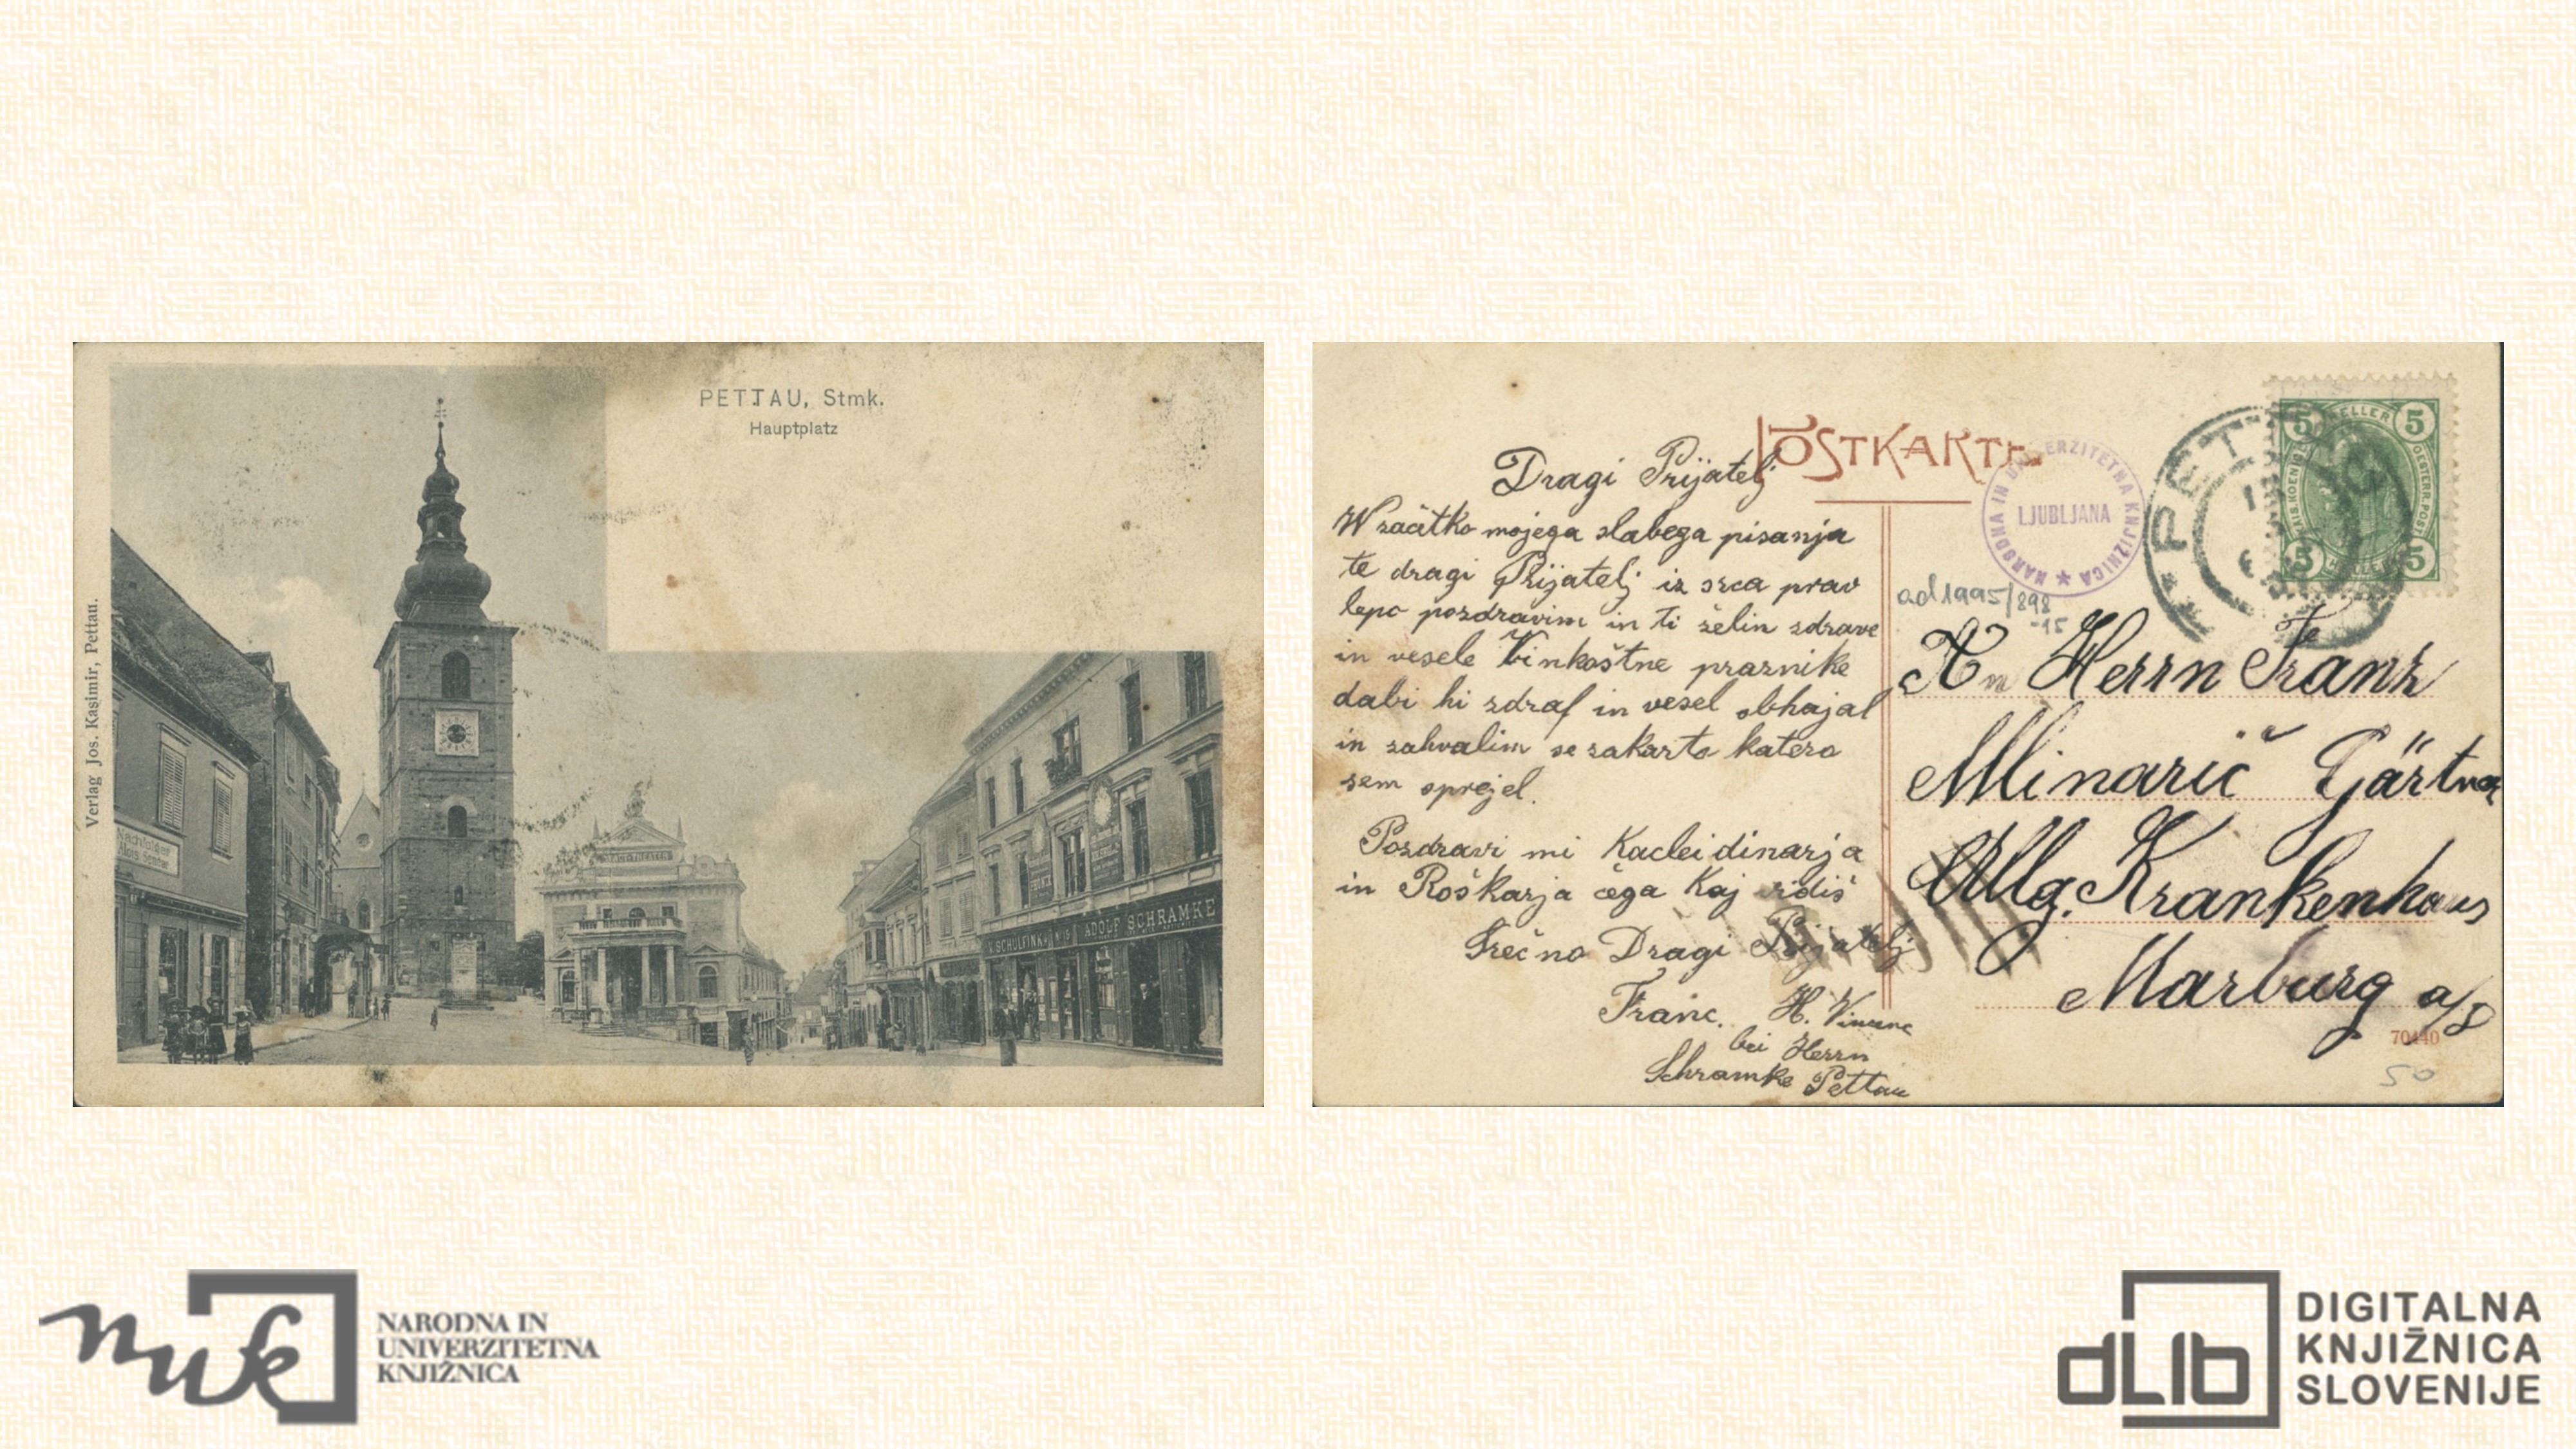 PETTAU, Stmk.
Hauptplatz
Verlag Jos. Kasimir, Pettau.
Nachfolger
Alois Senčar
STADT-THEATER
V. SCHULFINK
ADOLF SCHRAMKE
POSTKARTE
Dragi Prijatelj
W začitko mojega slabega pisanja
te dragi Prijatelj iz srca prav
lepo pozdravim in ti želin zdrave
in vesele Vinkoštne praznike
dabi hi zdraf in vesel obhajal
in zahvalim se zakarto katero
sem sprejel.
Pozdravi mi Kacleidinarja
in Roškarja čega Kaj vidiš
Srečno Dragi Prijatelj
Franc. H.
bei Herrn
Schramke Pettau
NARODNA IN UNIVERZITETNA KNJIŽNICA
LJUBLJANA
ad 1995/898
-15
PET
5 HELLER 5
KAIS. KOENIGL. OESTERR. POST
5 HELLER 5
An Herrn Franz
Mlinarič Gärtner
Allg. Krankenhaus
Marburg a/D
70440
50
nuk
NARODNA IN
UNIVERZITETNA
KNJIŽNICA
dLib
DIGITALNA
KNJIŽNICA
SLOVENIJE